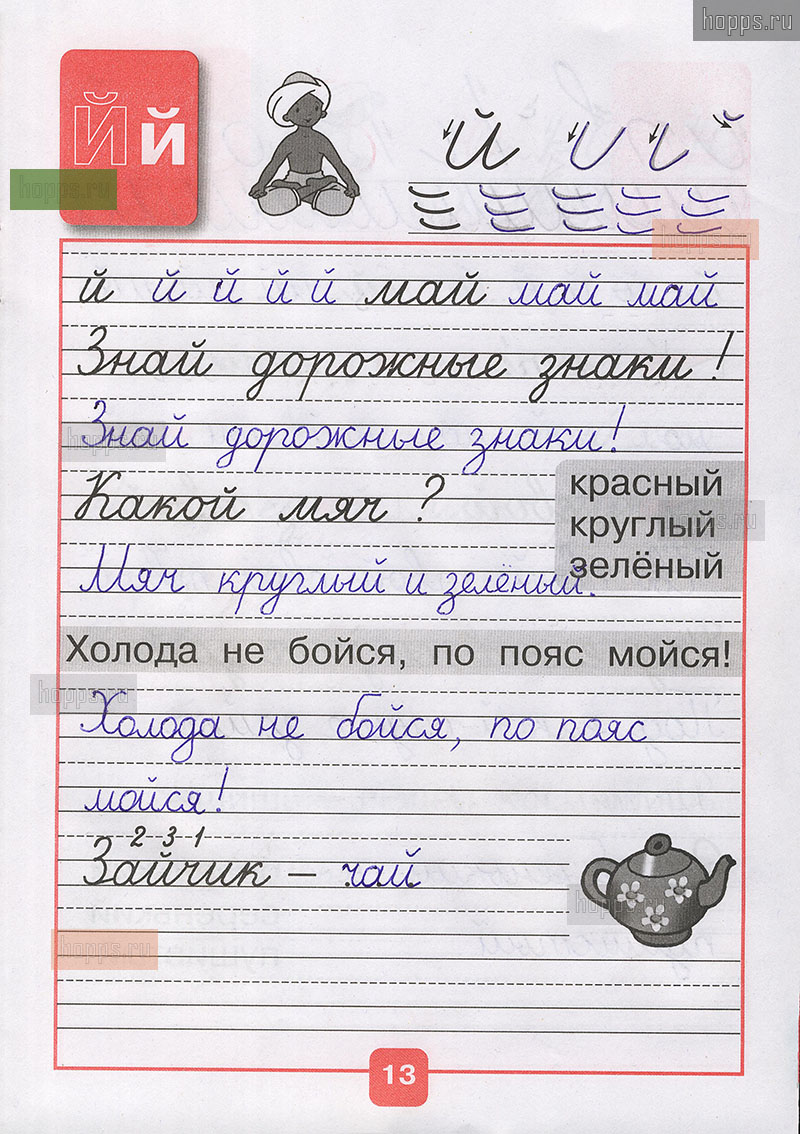 hopps.ru
Й й
hopps.ru
й
hopps.ru
й й й й й май май май
Знай дорожные знаки!
Знай дорожные знаки!
hopps.ru
Какой мяч?
красный
круглый
зелёный
hopps.ru
Мяч круглый и зелёный.
Холода не бойся, по пояс мойся!
hopps.ru
Холода не бойся, по пояс
мойся!
2 3 1
Зайчик – чай
hopps.ru
hopps.ru
13